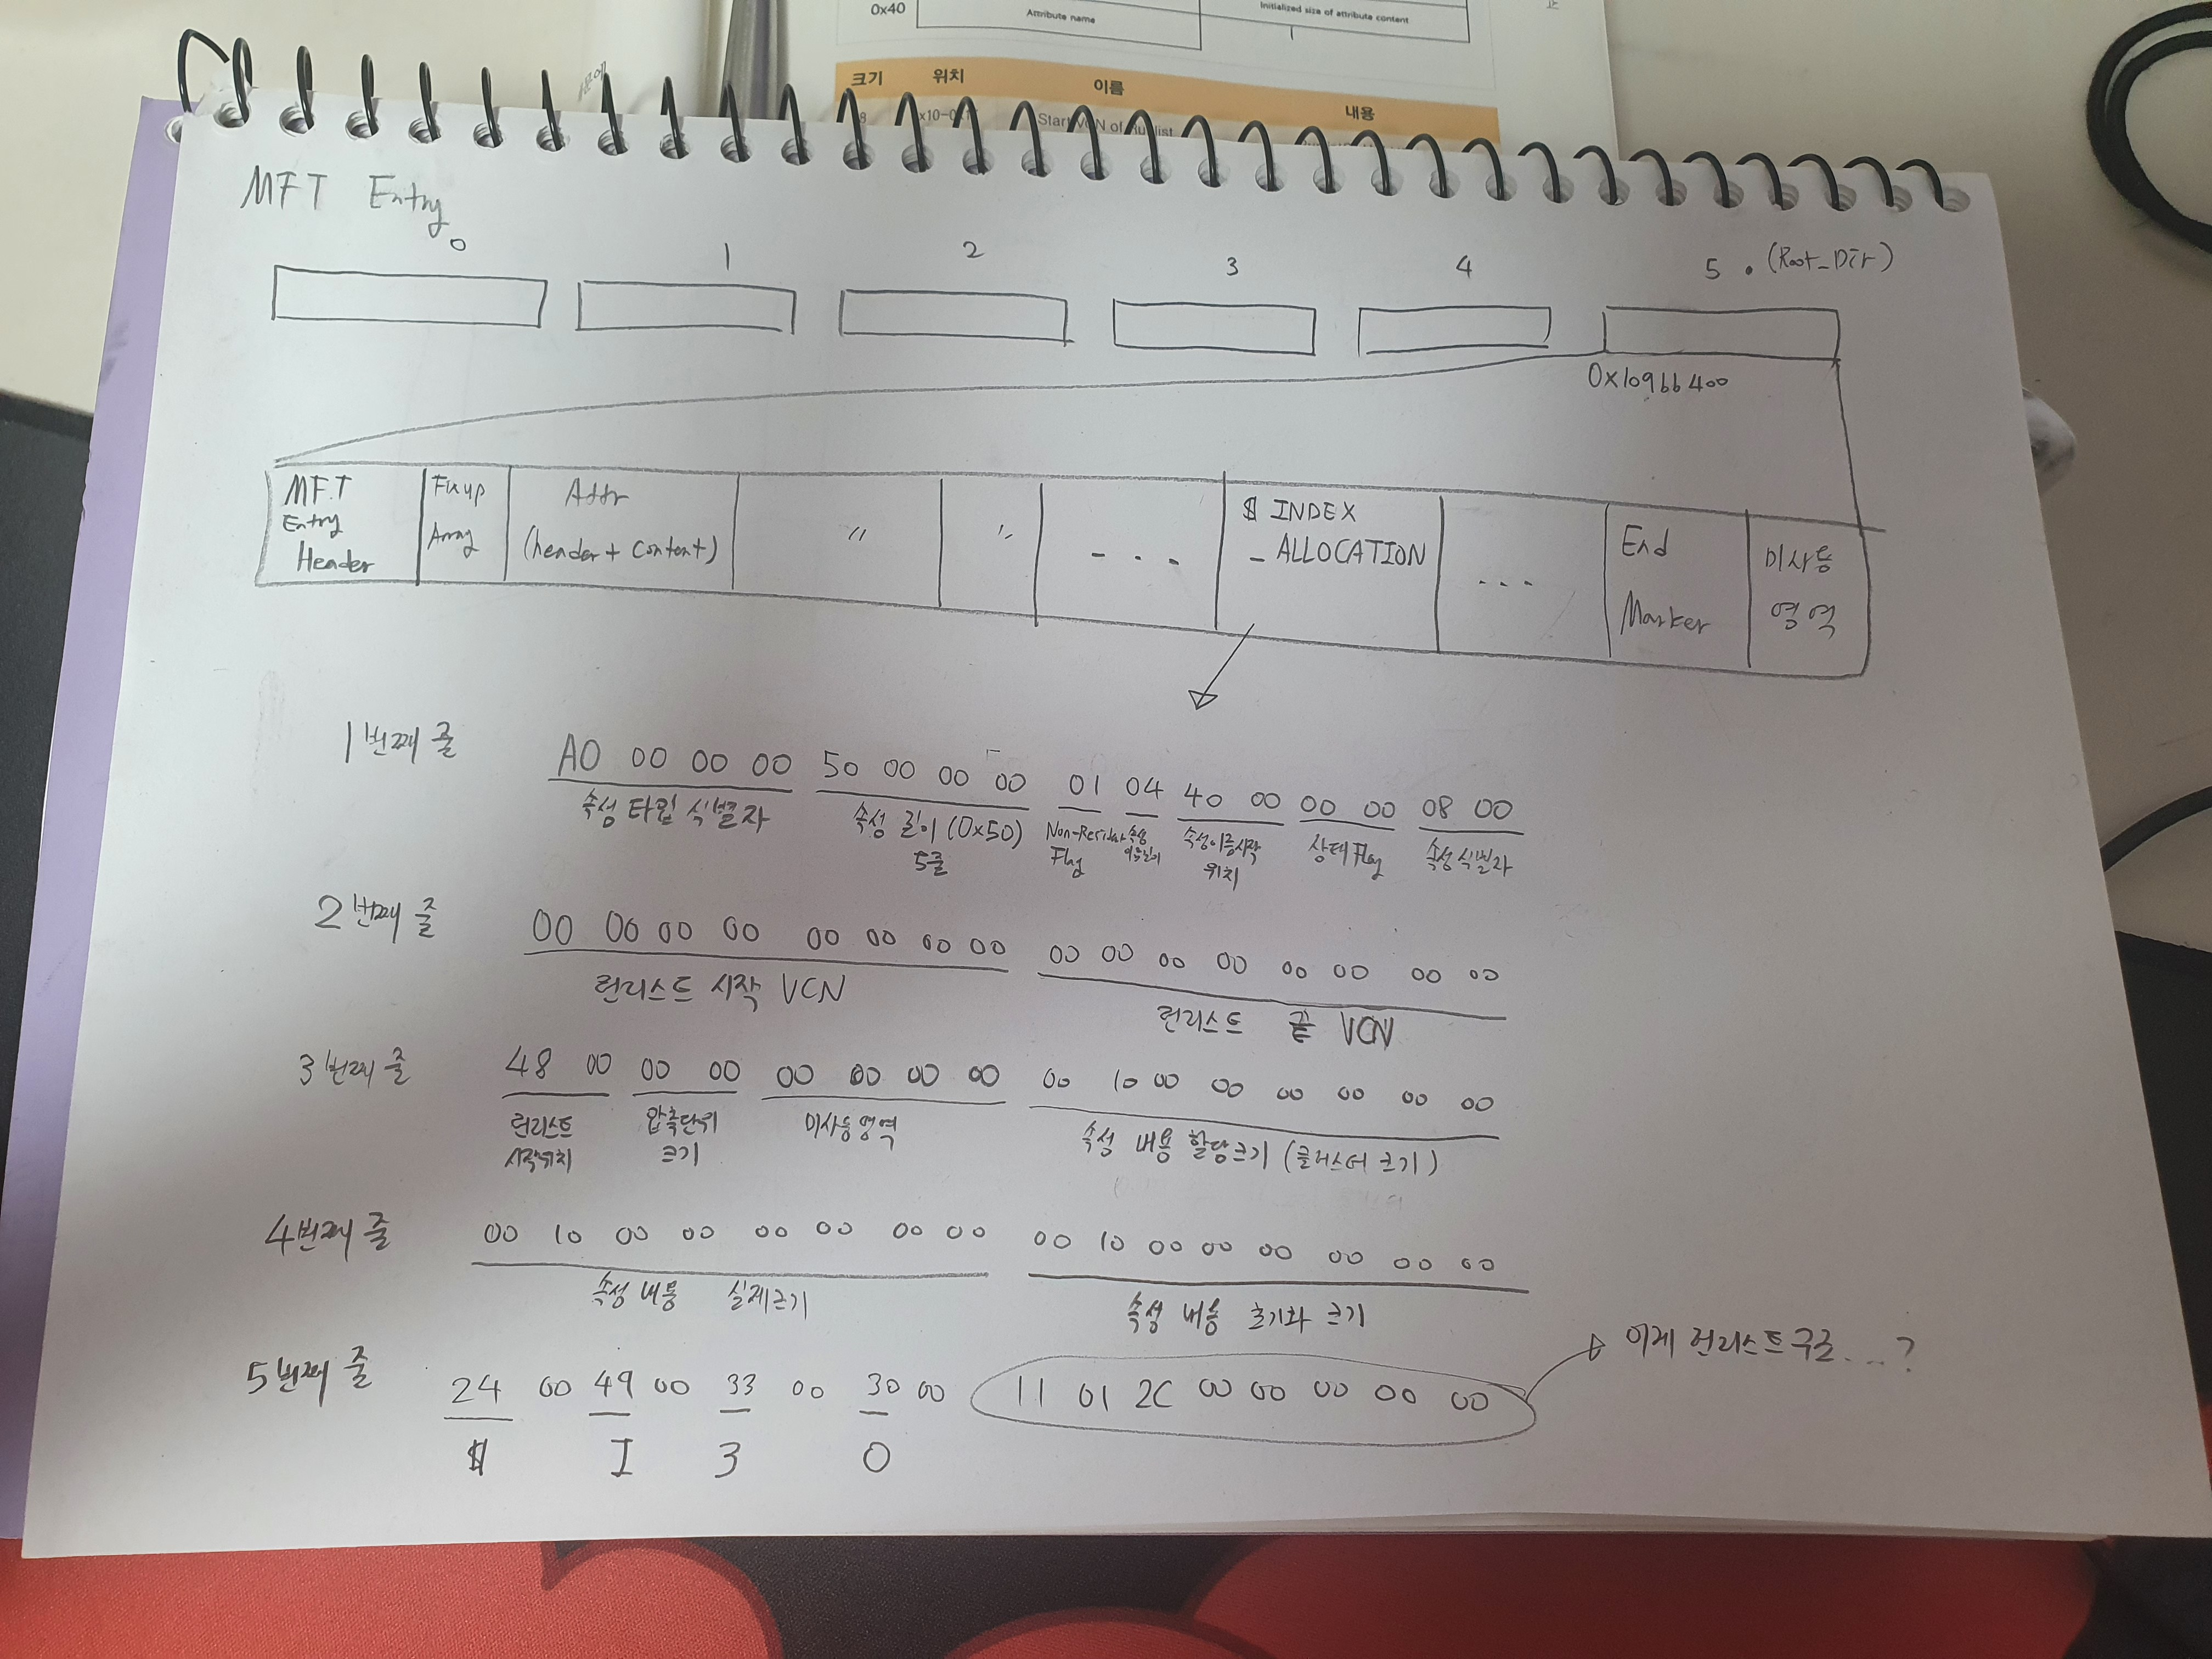 0x40
Attribute name
Initialized size of attribute content
크기 위치 이름 내용
MFT Entry
0 1 2 3 4 5 . (Root_Dir)
0x109bb400
MFT Entry Header
Fixup Array
Attr (header + content)
〃
〃
- - -
$ INDEX _ ALLOCATION
- - -
End Marker
미사용 영역
1번째 줄
A0 00 00 00 50 00 00 00 01 04 40 00 00 00 08 00
속성 타입 식별자
속성 길이 (0x50) 5줄
Flag
속성이름시작 위치
상태 Flag
속성식별자
2번째 줄
00 00 00 00 00 00 00 00 00 00 00 00 00 00 00 00
런리스트 시작 VCN
런리스트 끝 VCN
3번째 줄
48 00 00 00 00 00 00 00 00 10 00 00 00 00 00 00
런리스트 시작위치
압축단위 크기
미사용영역
속성 내용 할당크기 (클러스터 크기)
4번째 줄
00 10 00 00 00 00 00 00 00 10 00 00 00 00 00 00
속성 내용 실제크기
속성 내용 초기화 크기
5번째 줄
24 00 49 00 33 00 30 00 11 01 2C 00 00 00 00 00
$ I 3 0
이제 런리스트구조...?